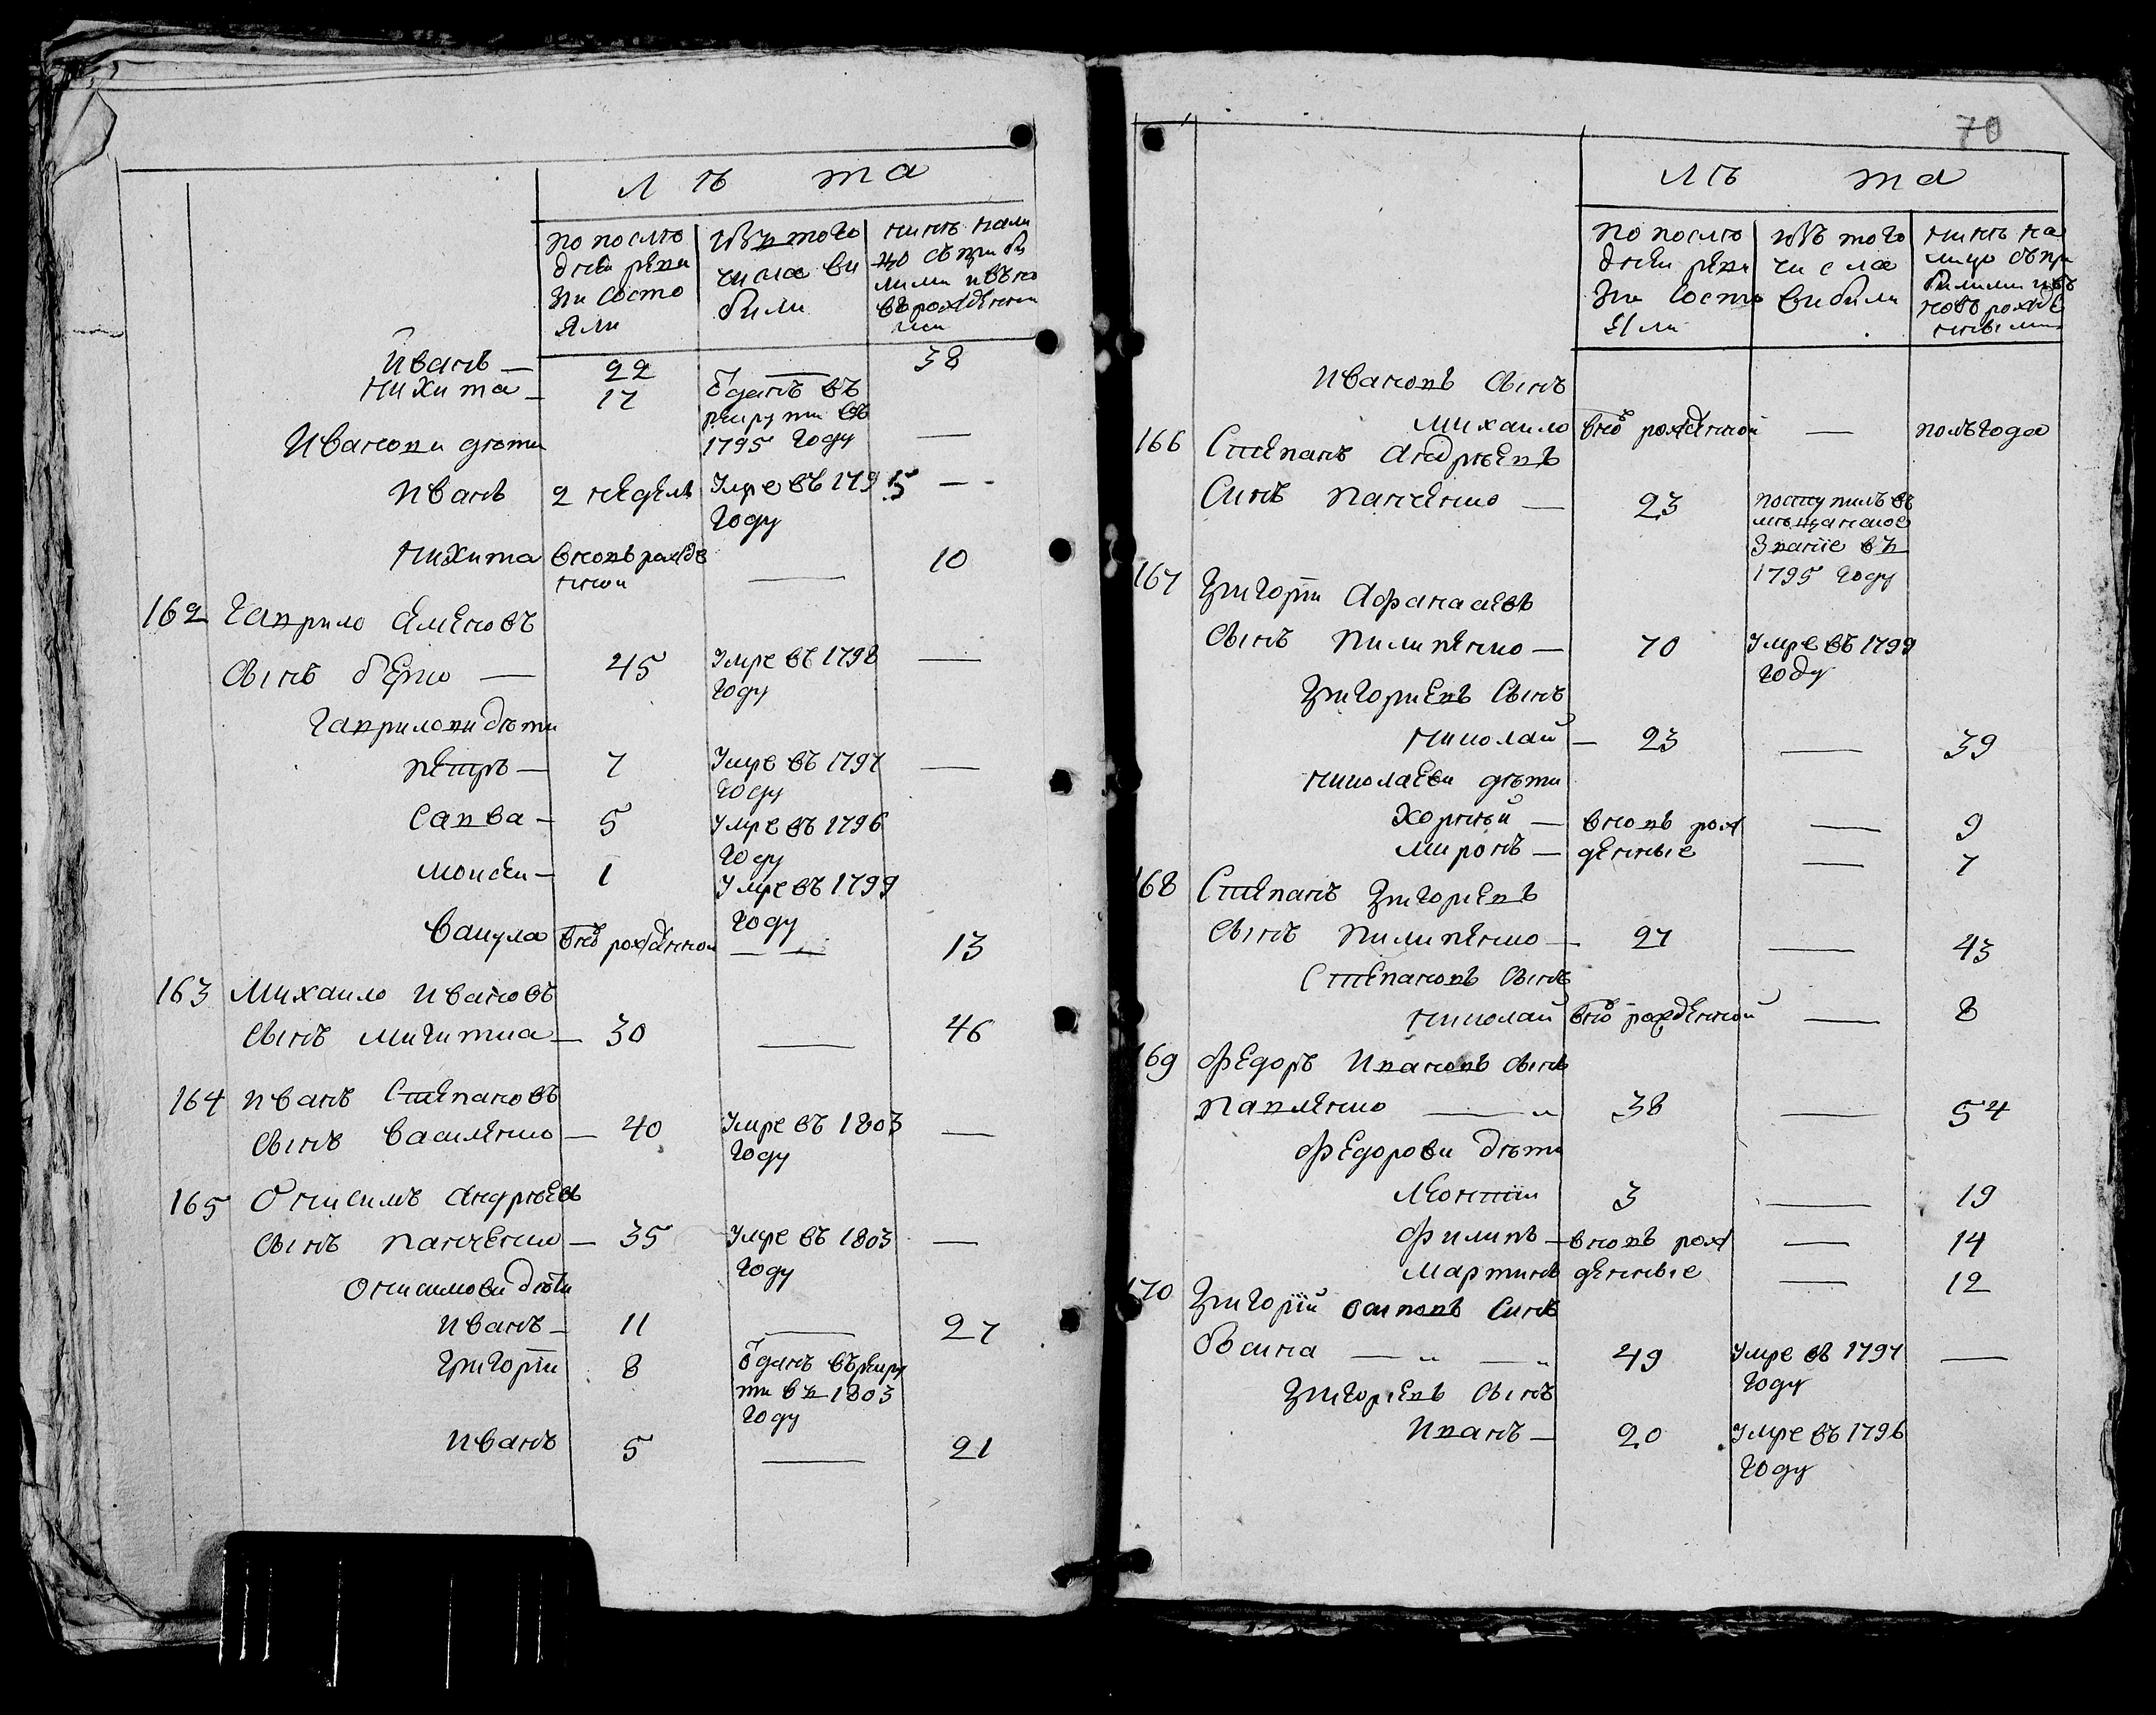 лѣ та
по послѣ
дней реви
зіи состо
яли
изъ того
числа вы
были
нинѣ нали
цо съ при бы
лыми и въ но
въ рожденны
ми
Иванъ — 22 — 38
Никита — 17 отданъ въ
рекруты въ
1795 году —
Ивановы дѣти
Иванъ 2 недели Умре въ 1795 —
году
Никита вновь рожде — 10
нной
162 Гаврило Яменовъ
сынъ — 45 Умре въ 1798 —
году
Гавриловы дѣти
Петръ — 7 Умре въ 1797 —
году
Савва — 5 Умре въ 1796
году
Моисей — 1 Умре въ 1799
году
Вакула внов рожденной — — 13
163 Михаило Ивановъ
сынъ Микитка — 30 — 46
164 Иванъ Степановъ
сынъ Василенко — 40 Умре въ 1803 —
году
165 Онисимъ Андрѣевъ
сынъ Панченко — 35 Умре въ 1803 —
году
Онисимовы дѣти
Иванъ — 11 — 27
Григорій 8 отданъ въ рекру
ты въ 1803
году
Иванъ 5 — 21
70
лѣ та
по послѣ
дней реви
зіи состо
яли
изъ того
числа
выбыли
нинѣ на
лицо съ при
былыми и въ
новъ рожде
нными
Ивановъ сынъ
Михаило внов рожденной — полъ года
166 Степанъ Андрѣевъ
синъ Панченко — 23 поступилъ въ
мѣщанское
званіе въ
1795 году
167 Григорій Афанасіевъ
сынъ Пилипенко — 70 Умре въ 1799
году
Григориевъ сынъ
Николай — 23 — 39
Николаеви дѣти
Корній — вновъ рож — 9
Миронъ — денные — 7
168 Степанъ Григориевъ
сынъ Пилипенко — 27 — 43
Степановъ сынъ
Николай внов рожденной — 8
169 Федоръ Ивановъ сынъ
Павленко — „ 38 — 54
Федорови дѣти
Леонтій 3 — 19
Филипъ — вновъ рож — 14
Мартинъ денные — 12
170 Григорій Осиповъ синъ
— „ — „ 49 Умре въ 1797 —
году
Григориевъ сынъ
Иванъ — 20 Умре въ 1796
году